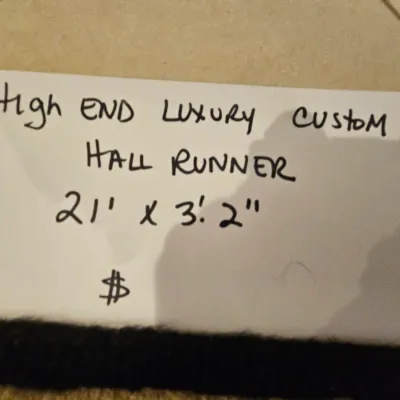 High END LUXURY CUSTOM
HALL RUNNER
21' x 3'. 2"
$